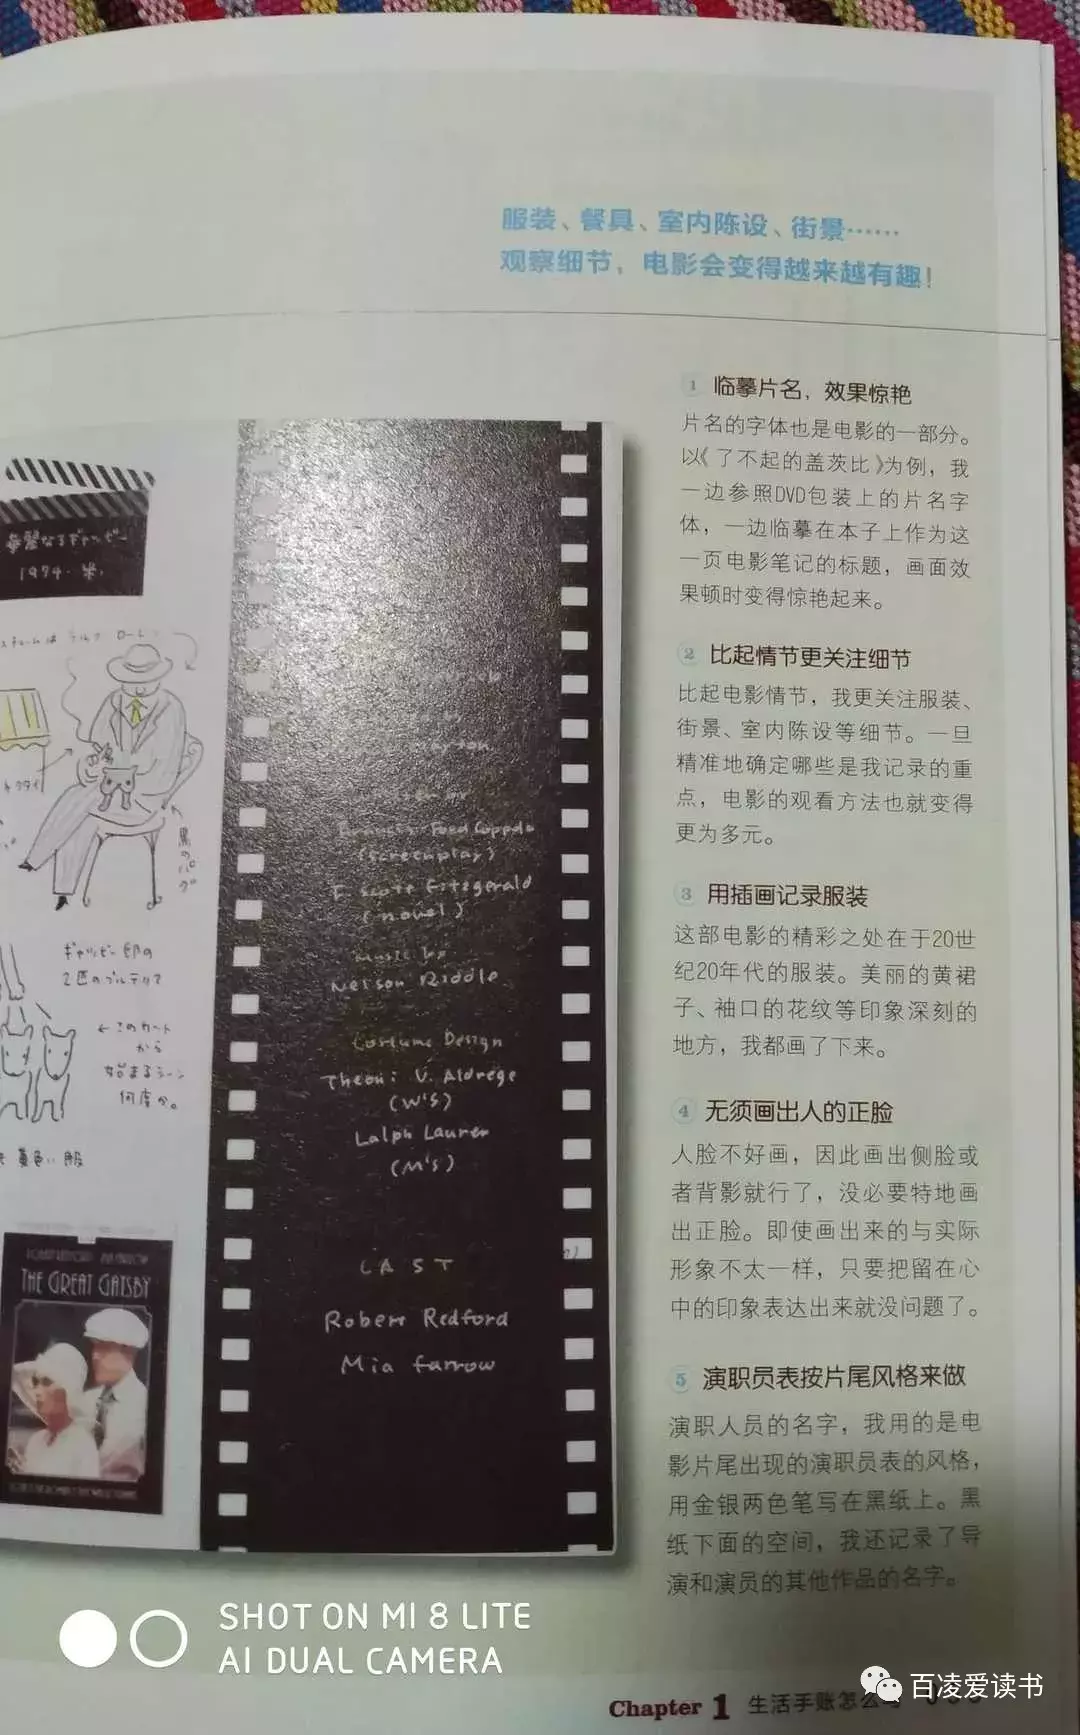 服装、餐具、室内陈设、街景……
观察细节，电影会变得越来越有趣！
1 临摹片名，效果惊艳
片名的字体也是电影的一部分。
以《了不起的盖茨比》为例，我
一边参照DVD包装上的片名字
体，一边临摹在本子上作为这
一页电影笔记的标题，画面效
果顿时变得惊艳起来。
2 比起情节更关注细节
比起电影情节，我更关注服装、
街景、室内陈设等细节。一旦
精准地确定哪些是我记录的重
点，电影的观看方法也就变得
更为多元。
3 用插画记录服装
这部电影的精彩之处在于20世
纪20年代的服装。美丽的黄裙
子、袖口的花纹等印象深刻的
地方，我都画了下来。
4 无须画出人的正脸
人脸不好画，因此画出侧脸或
者背影就行了，没必要特地画
出正脸。即使画出来的与实际
形象不太一样，只要把留在心
中的印象表达出来就没问题了。
5 演职员表按片尾风格来做
演职人员的名字，我用的是电
影片尾出现的演职员表的风格，
用金银两色笔写在黑纸上。黑
纸下面的空间，我还记录了导
演和演员的其他作品的名字。
華麗なるギャツビー
1974・米
黒のパグ
ギャツビー邸の
2匹の
←このカット
から
始まるシーン
何度か。
黄色い服
THE GREAT GATSBY
Francis Ford Coppola
(screenplay)
F Scott Fitzgerald
(novel)
music by
Nelson Riddle
Costume Design
Theoni V. Aldrege
(W'S)
Lalph Lauren
(M'S)
CAST
Robert Redford
Mia farrow
SHOT ON MI 8 LITE
AI DUAL CAMERA
百凌爱读书
Chapter 1 生活手账怎么